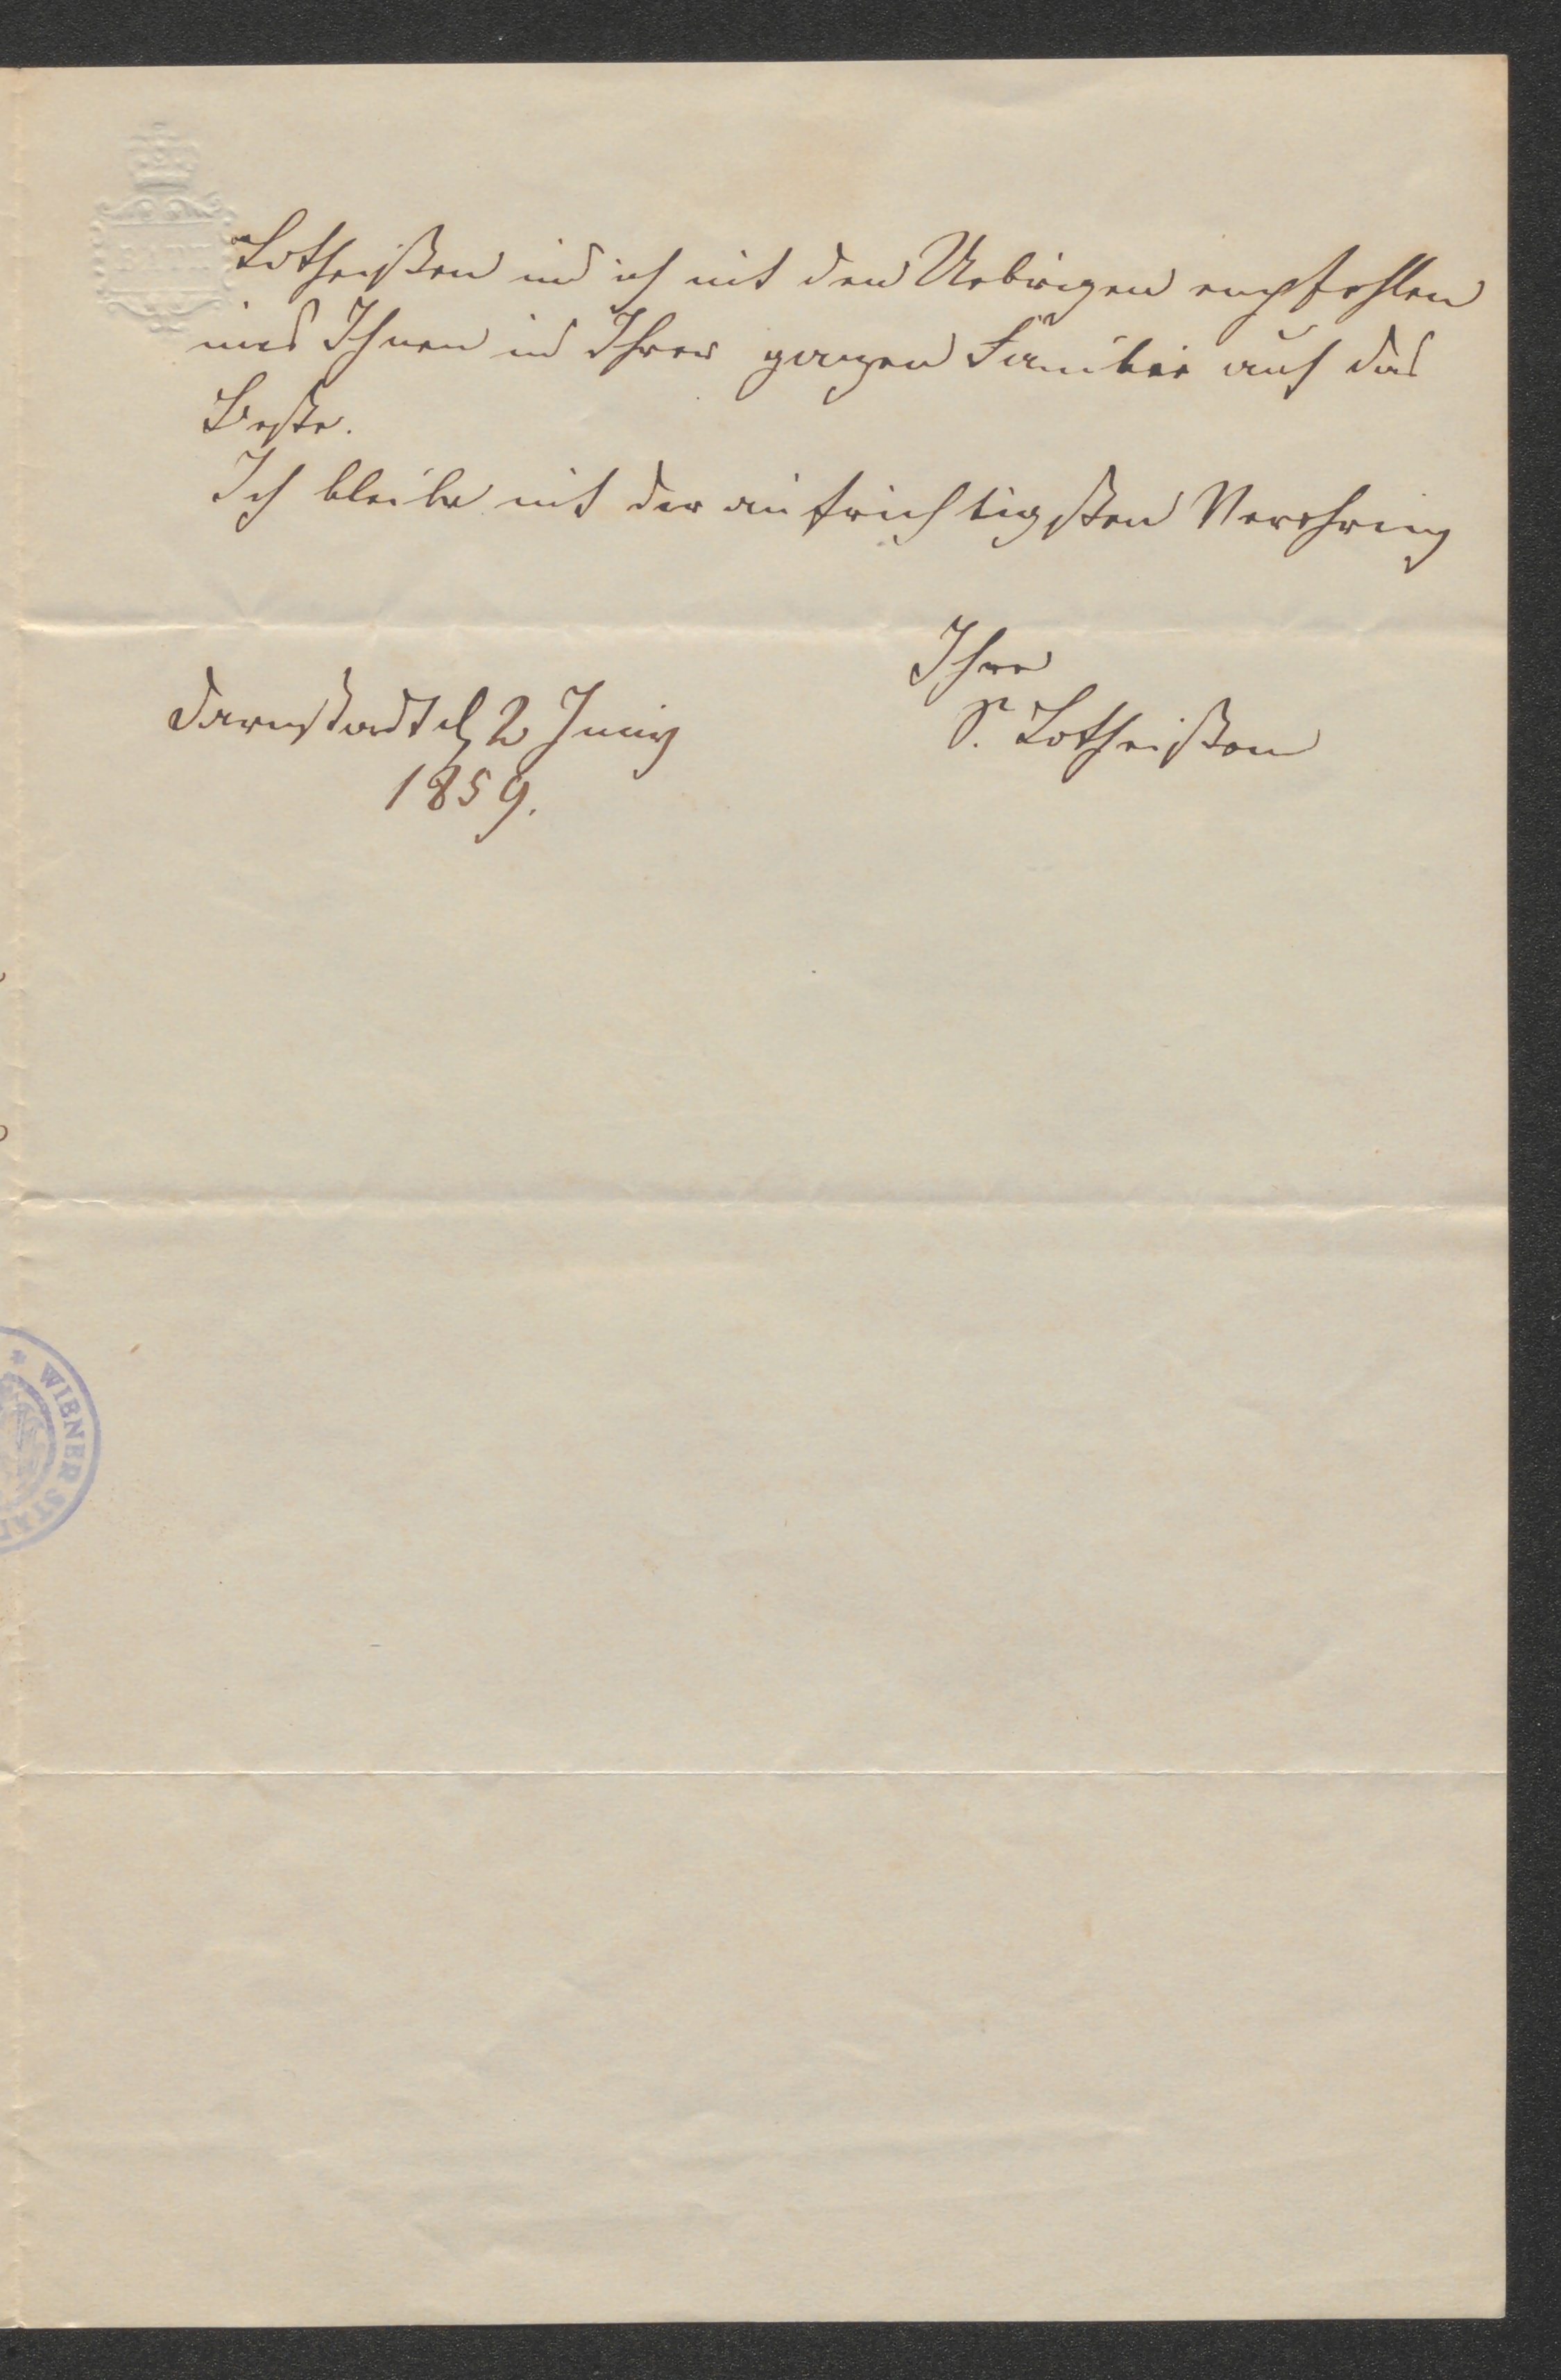 Lotheißen und ich mit den Uebrigen empfehlen
uns Ihnen und Ihrer ganzen Familie auf das
Beste.
Ich bleibe mit der aufrichtigsten Verehrung
Ihre
S. Lotheißen
Darmstadt d 2 Juny
1859.
BATH
* WIENER STA